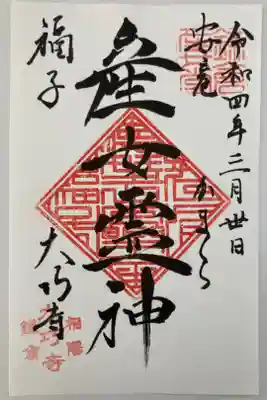 令和四年三月廿日
かまくら
産女霊神
福子
大巧寺
相陽
鎌倉
大巧寺